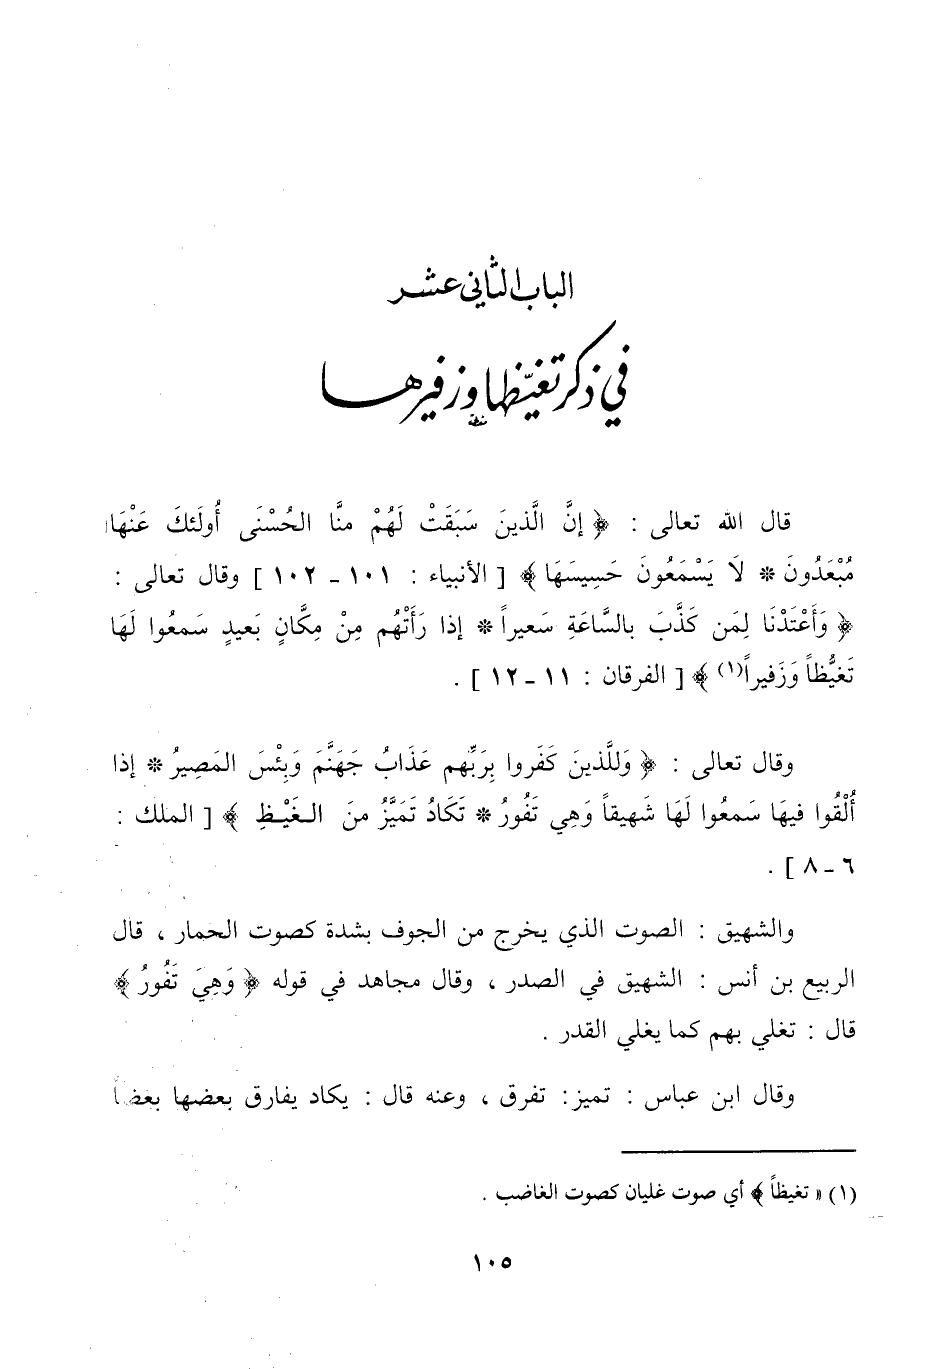 الباب الثاني عشر
في ذكر تغيّظها وزفيرها
قال الله تعالى : ﴿ إنَّ الَّذينَ سَبَقَتْ لَهُمْ منَّا الحُسْنَى أُولَئكَ عَنْهَا
مُبْعَدُونَ * لَا يَسْمَعُونَ حَسِيسَهَا ﴾ [ الأنبياء : ١٠١ - ١٠٢ ] وقال تعالى :
﴿ وَأَعْتَدْنَا لِمَن كَذَّبَ بالسَّاعَةِ سَعيراً * إذا رَأَتْهُم مِنْ مكَّانٍ بَعيدٍ سَمعُوا لَهَا
تَغيُّظاً وَزَفيراً(١) ﴾ [ الفرقان : ١١ - ١٢ ] .
وقال تعالى : ﴿ وَللَّذينَ كَفَروا بِرَبِّهم عَذَابُ جَهَنَّمَ وَبِئْسَ المَصِيرُ * إذا
أُلْقُوا فيهَا سَمعُوا لَهَا شَهيقاً وَهِي تَفُورُ * تَكَادُ تَمَيَّزُ منَ الغَيْظِ ﴾ [ الملك :
٦ - ٨ ] .
والشهيق : الصوت الذي يخرج من الجوف بشدة كصوت الحمار ، قال
الربيع بن أنس : الشهيق في الصدر ، وقال مجاهد في قوله ﴿ وَهِيَ تَفُورُ ﴾
قال : تغلي بهم كما يغلي القدر .
وقال ابن عباس : تميز : تفرق ، وعنه قال : يكاد يفارق بعضها بعضاً
(١) « تغيظاً ﴾ أي صوت غليان كصوت الغاضب .
١٠٥